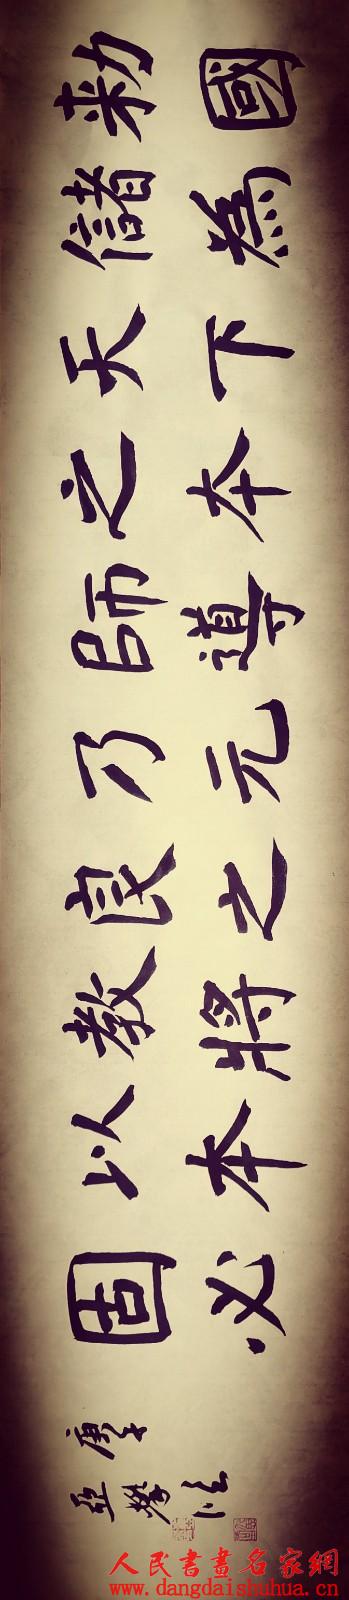 勅國
儲為
天下
之本
師導
乃元
良之
教將
以本
固必
人民書畫名家網
www.dangdaishuhua.cn